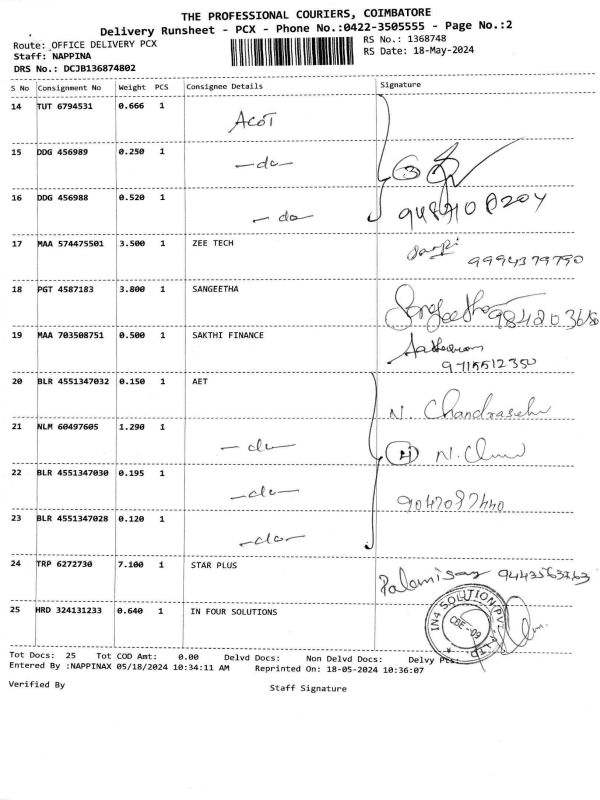 THE PROFESSIONAL COURIERS, COIMBATORE
Delivery Runsheet - PCX - Phone No.:0422-3505555 - Page No.:2
Route: OFFICE DELIVERY PCX
RS No.: 1368748
Staff: NAPPINA
RS Date: 18-May-2024
DRS No.: DCJB136874802
S No Consignment No Weight PCS Consignee Details Signature
14 TUT 6794531 0.666 1 ACOT
15 DDG 456989 0.250 1 -do-
3
16 DDG 456988 0.520 1 -do-
17 MAA 574475501 3.500 1 ZEE TECH
9994379790
18 PGT 4587183 3.800 1 SANGEETHA
Sangeetha 9842036180
19 MAA 703508751 0.500 1 SAKTHI FINANCE
9715512350
20 BLR 4551347032 0.150 1 AET
N. Chandrasekar
21 NLM 60497605 1.290 1 -do-
4 N.
22 BLR 4551347030 0.195 1 -do-
9047097440
23 BLR 4551347028 0.120 1 -do-
24 TRP 6272730 7.100 1 STAR PLUS
Palanisamy 9443563763
25 HRD 324131233 0.640 1 IN FOUR SOLUTIONS
IN4 SOLUTION PVT LTD
CBE-09
Tot Docs: 25 Tot COD Amt: 0.00 Delvd Docs: Non Delvd Docs: Delvy Pts:
Entered By :NAPPINAX 05/18/2024 10:34:11 AM Reprinted On: 18-05-2024 10:36:07
Verified By
Staff Signature